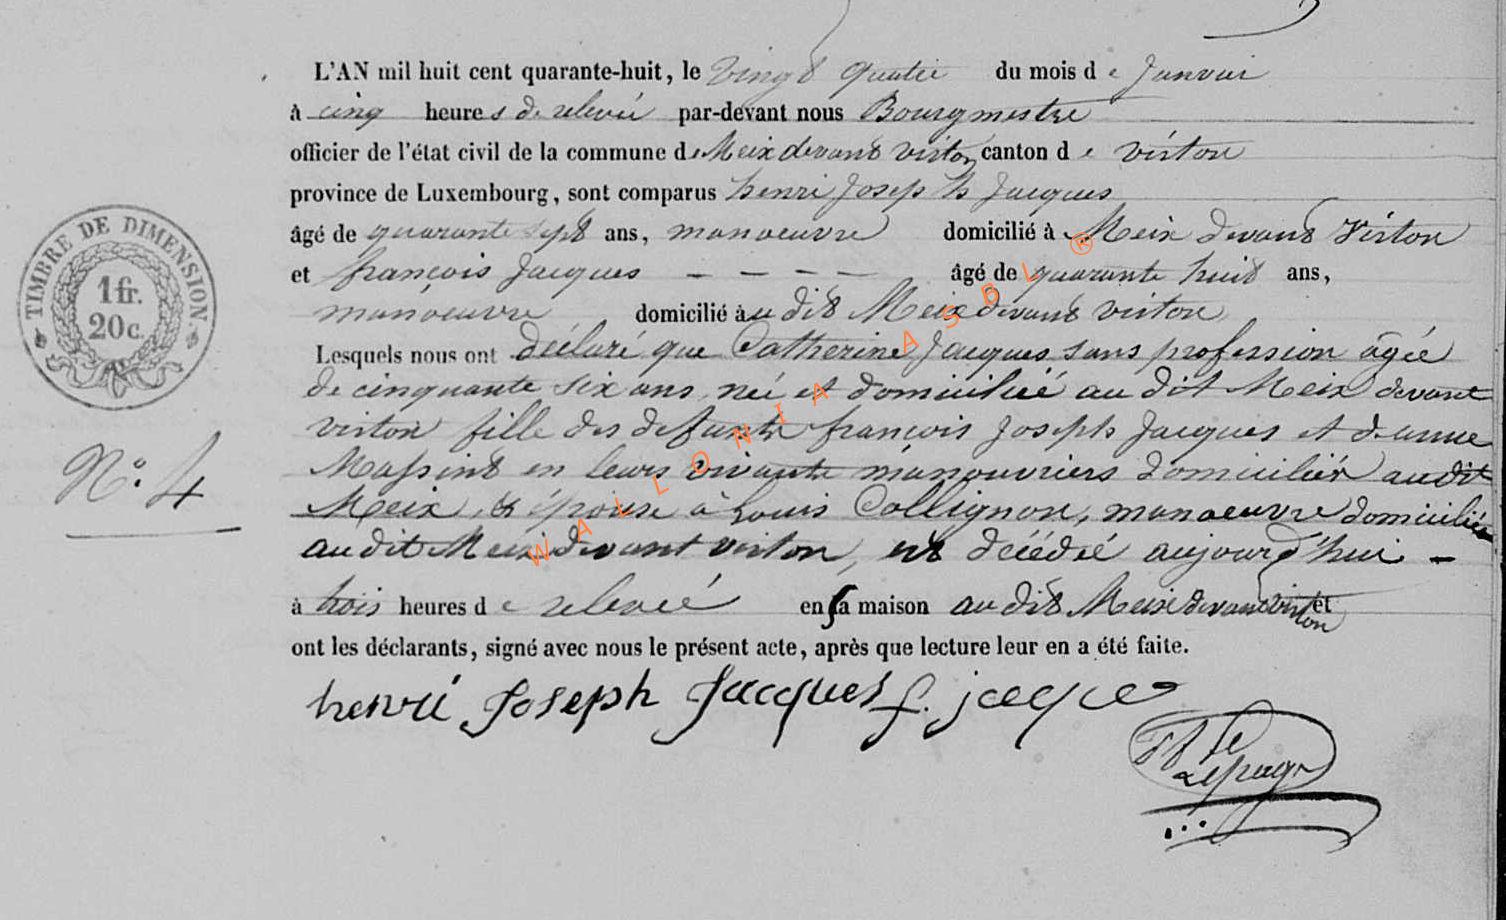 L'AN mil huit cent quarante-huit, le vingt quatre du mois de janvier
à cinq heures de relevée par-devant nous Bourgmestre
officier de l'état civil de la commune de Meix devant virton canton de virton
province de Luxembourg, sont comparus henri Joseph Jacques
âgé de quarante sept ans, manoeuvre domicilié à Meix devant Virton
et françois Jacques - - - - âgé de quarante huit ans,
manoeuvre domicilié au dit Meix devant virton
Lesquels nous ont déclaré que Catherine Jacques sans profession âgée
de cinquante six ans, née et domiciliée au dit Meix devant
virton fille des defunts françois Joseph Jacques et d'anne
Massint en leurs vivants manouvriers domiciliés au dit
Meix, & épouse à Louis Collignon, manoeuvre domicilié
au dit Meix devant virton, est décédée aujourd'hui -
à trois heures de relevée en sa maison au dit Meix devant virton et
ont les déclarants, signé avec nous le présent acte, après que lecture leur en a été faite.
henri Joseph Jacques f. jacques
Lepage
TIMBRE DE DIMENSION
1 fr.
20c.
N.º 4
WALLONIA ASBL ®